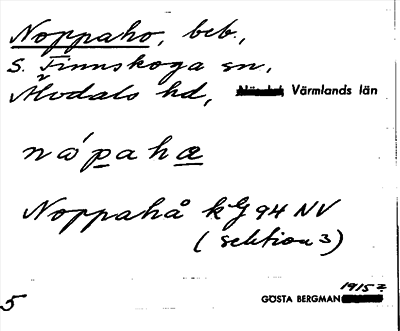 Noppaho, beb.,
S. Finnskoga sn.,
Älvdals hd, Värmlands län
nȧ́pahæ
Noppahå kG 94 NV
(sektion 3)
1915?
GÖSTA BERGMAN
5